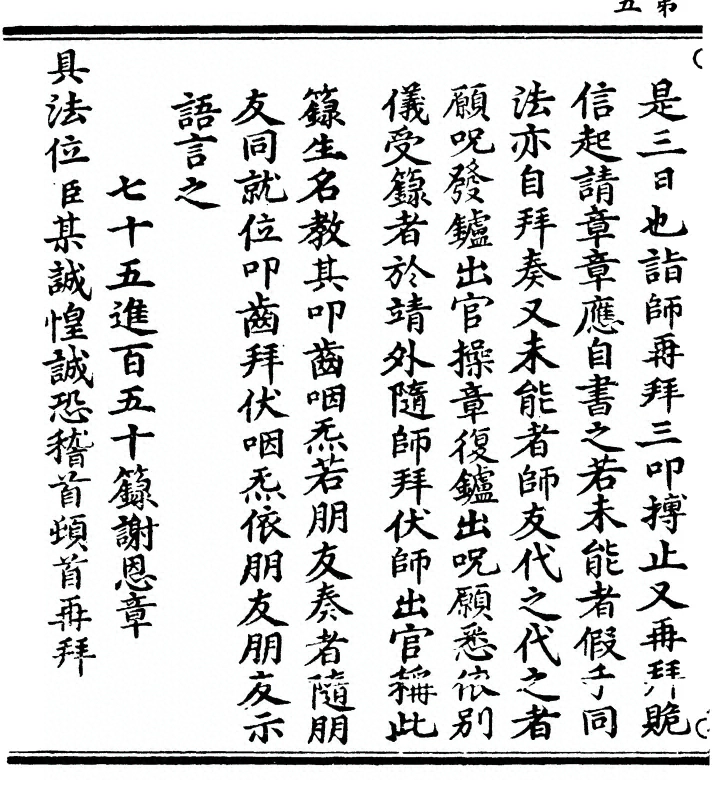 第五
是三日也詣師再拜三叩搏止又再拜䠒
信起請章章應自書之若未能者假手同
法亦自拜奏又未能者師友代之代之者
願呪發鑪出官操章復鑪出呪願悉依別
儀受籙者於靖外隨師拜伏師出官稱此
籙生名教其叩齒咽炁若朋友奏者隨朋
友同就位叩齒拜伏咽炁依朋友朋友示
語言之
七十五進百五十籙謝恩章
具法位臣某誠惶誠恐稽首頓首再拜